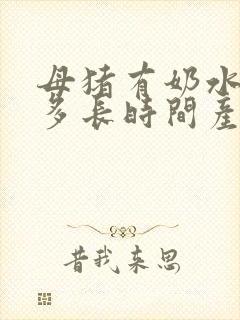 母猪有奶水
多长時間產
昔我来思